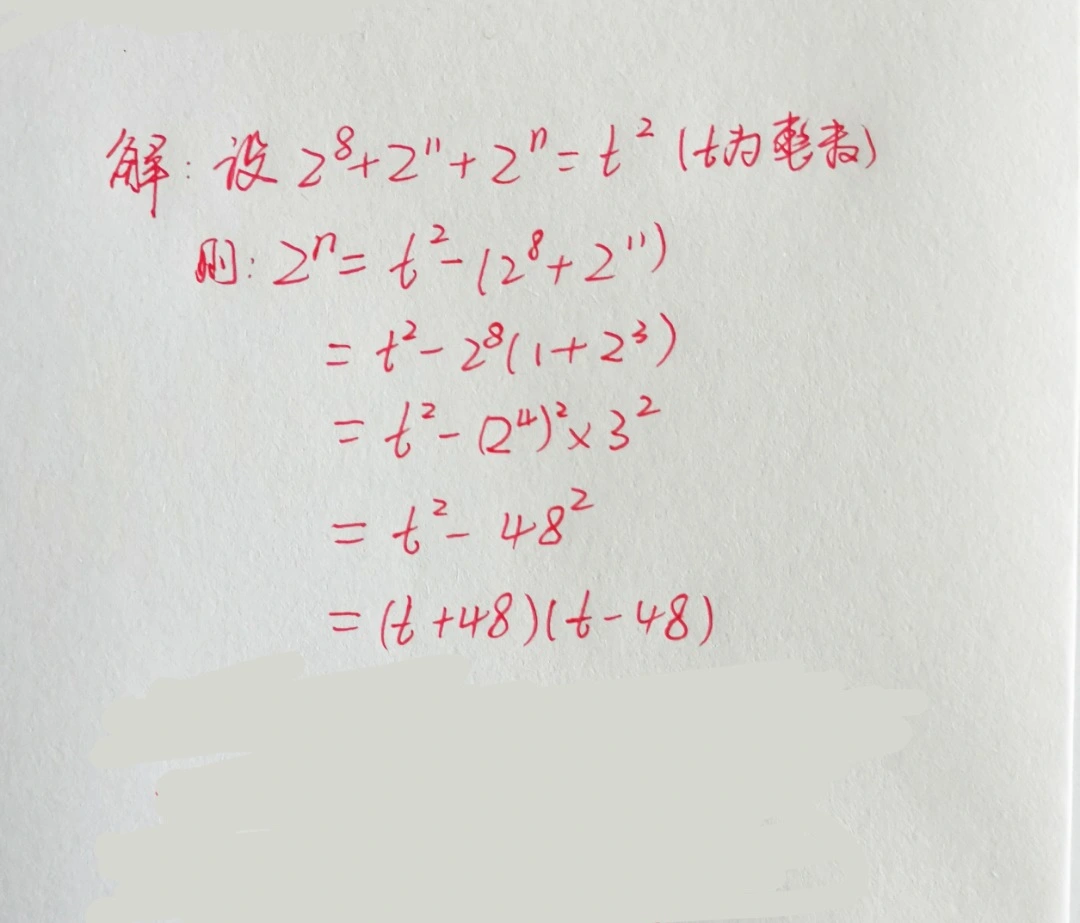 解:设 2⁸+2¹¹+2ⁿ=t² (t为整数)
则:2ⁿ=t²-(2⁸+2¹¹)
=t²-2⁸(1+2³)
=t²-(2⁴)²×3²
=t²-48²
=(t+48)(t-48)